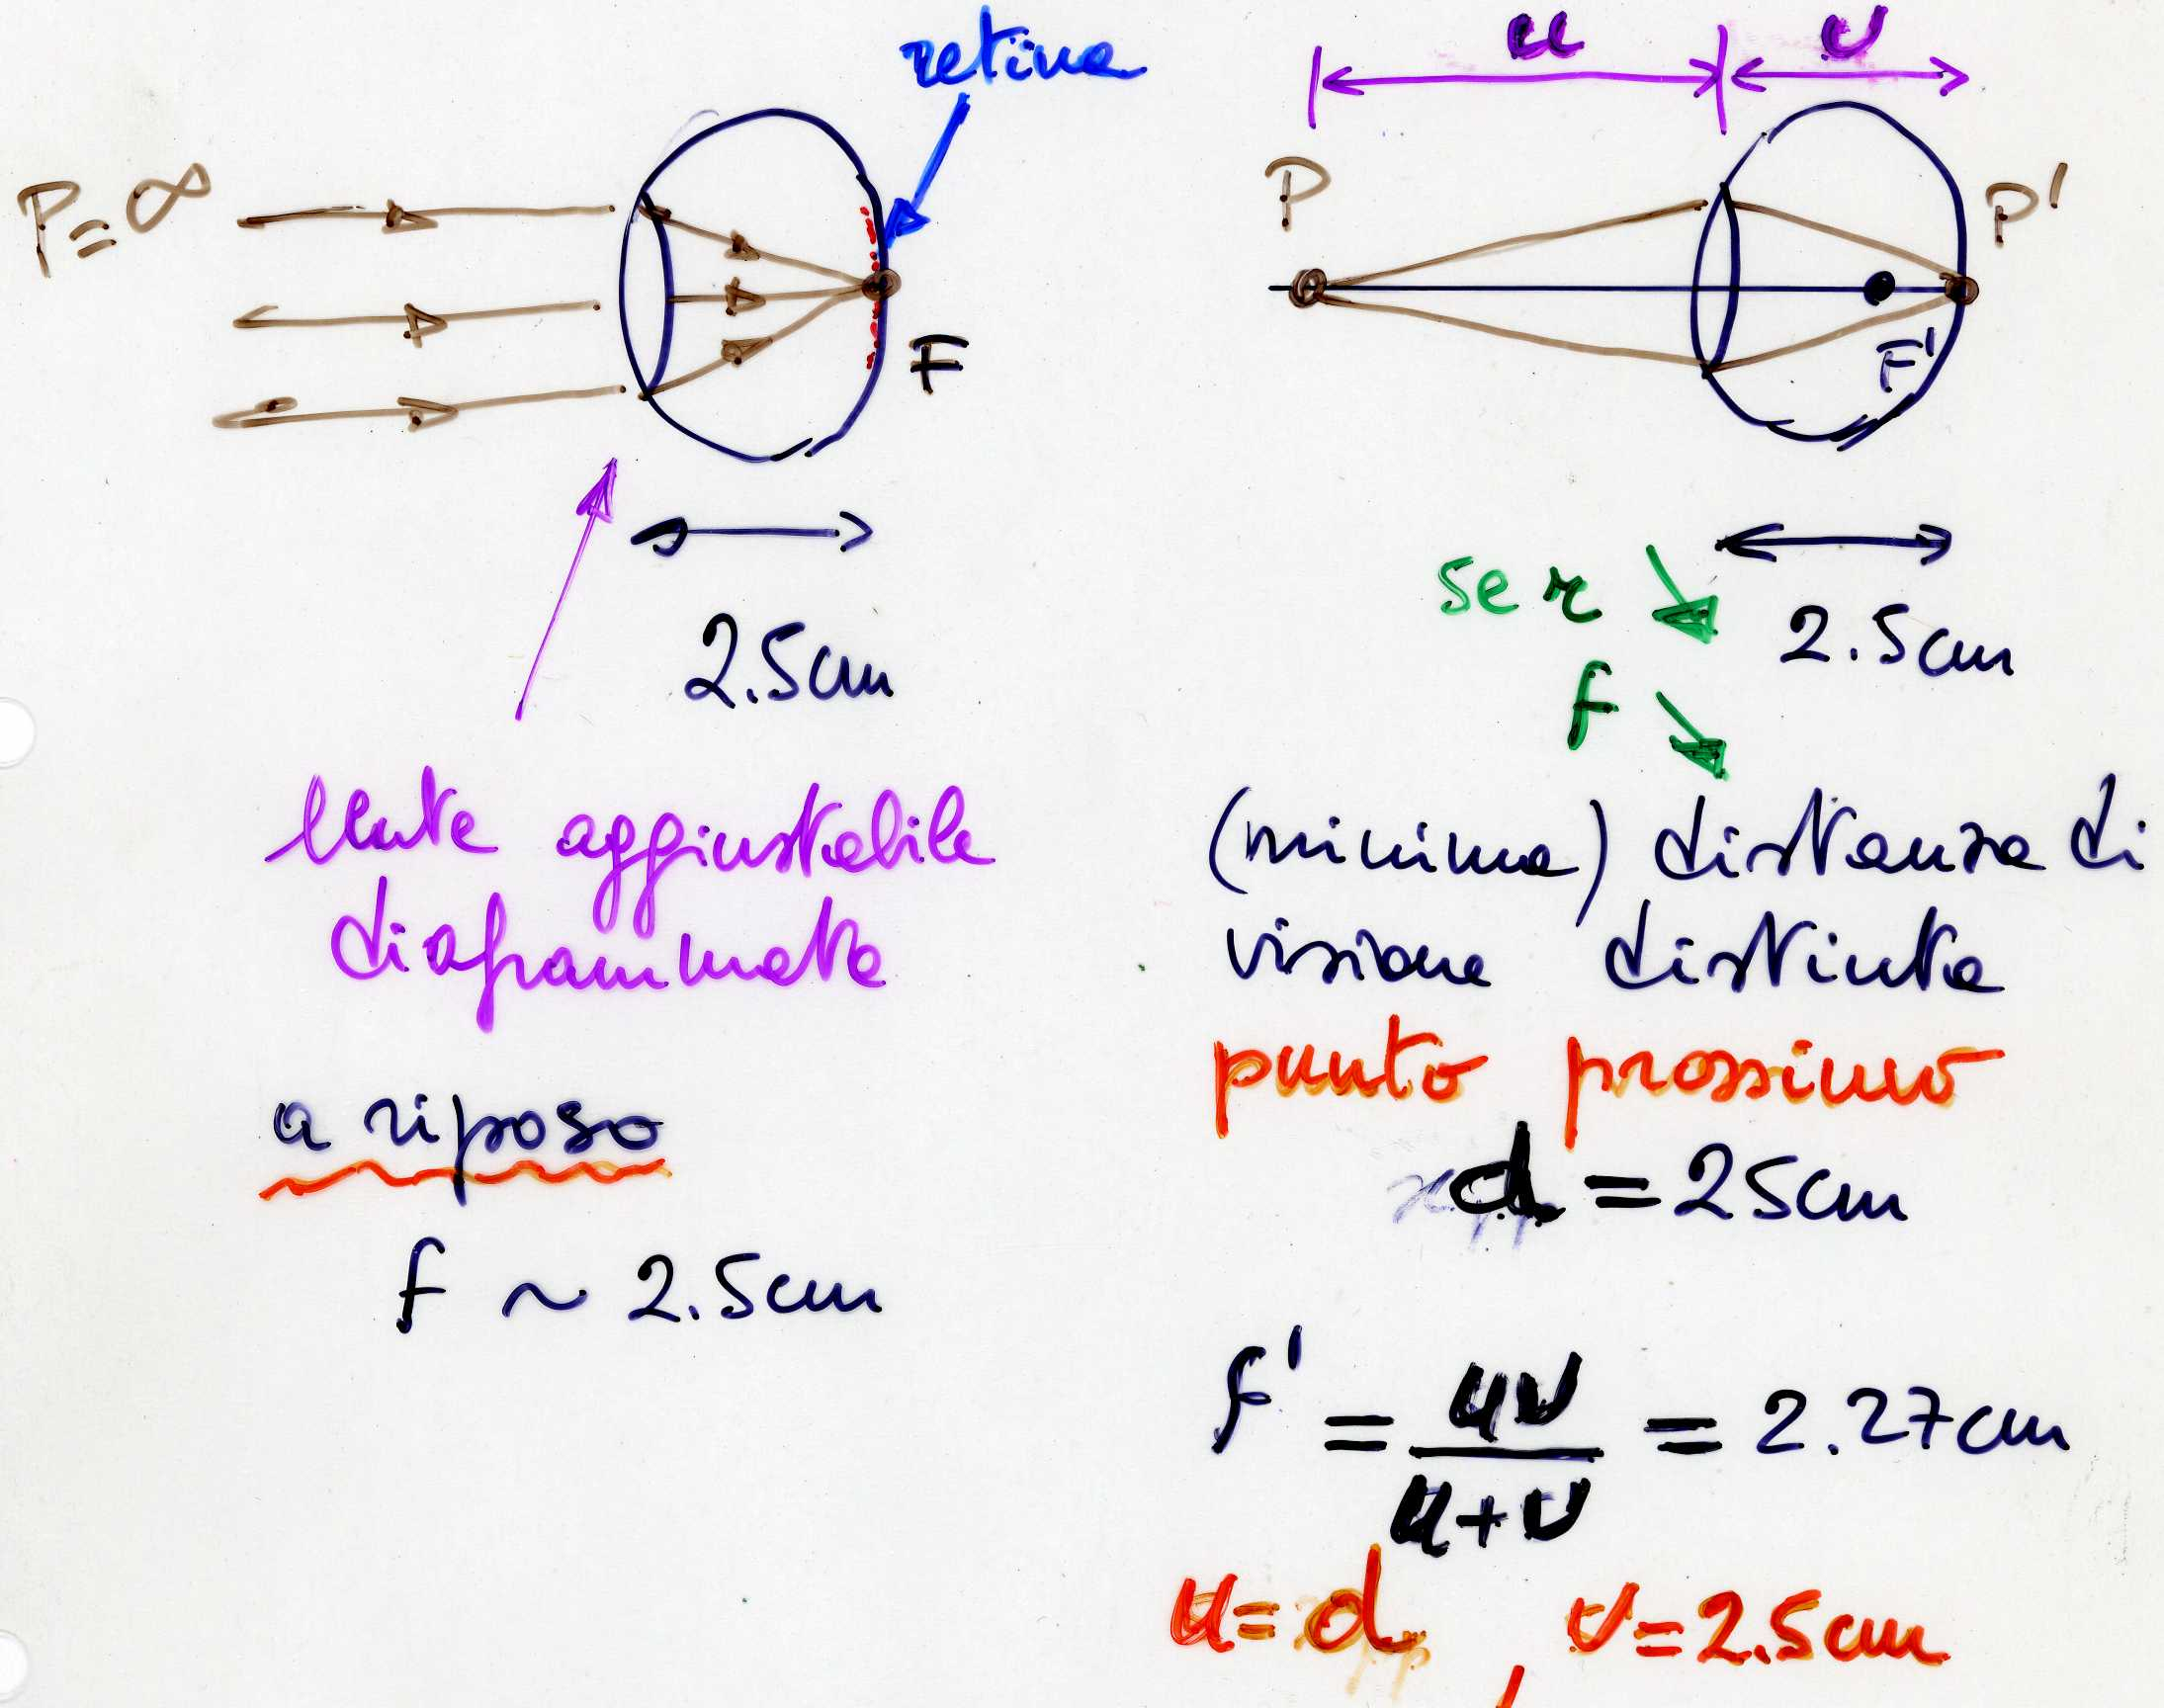 retina
P=∞
F
2.5cm
lente aggiustabile
diaframmata
a riposo
f ~ 2.5cm
u v
P P'
F'
2.5cm
se r ↘
f ↘
(minima) distanza di
visione distinta
punto prossimo
d = 25cm
f' = uv/u+v = 2.27cm
u=d, v=2.5cm